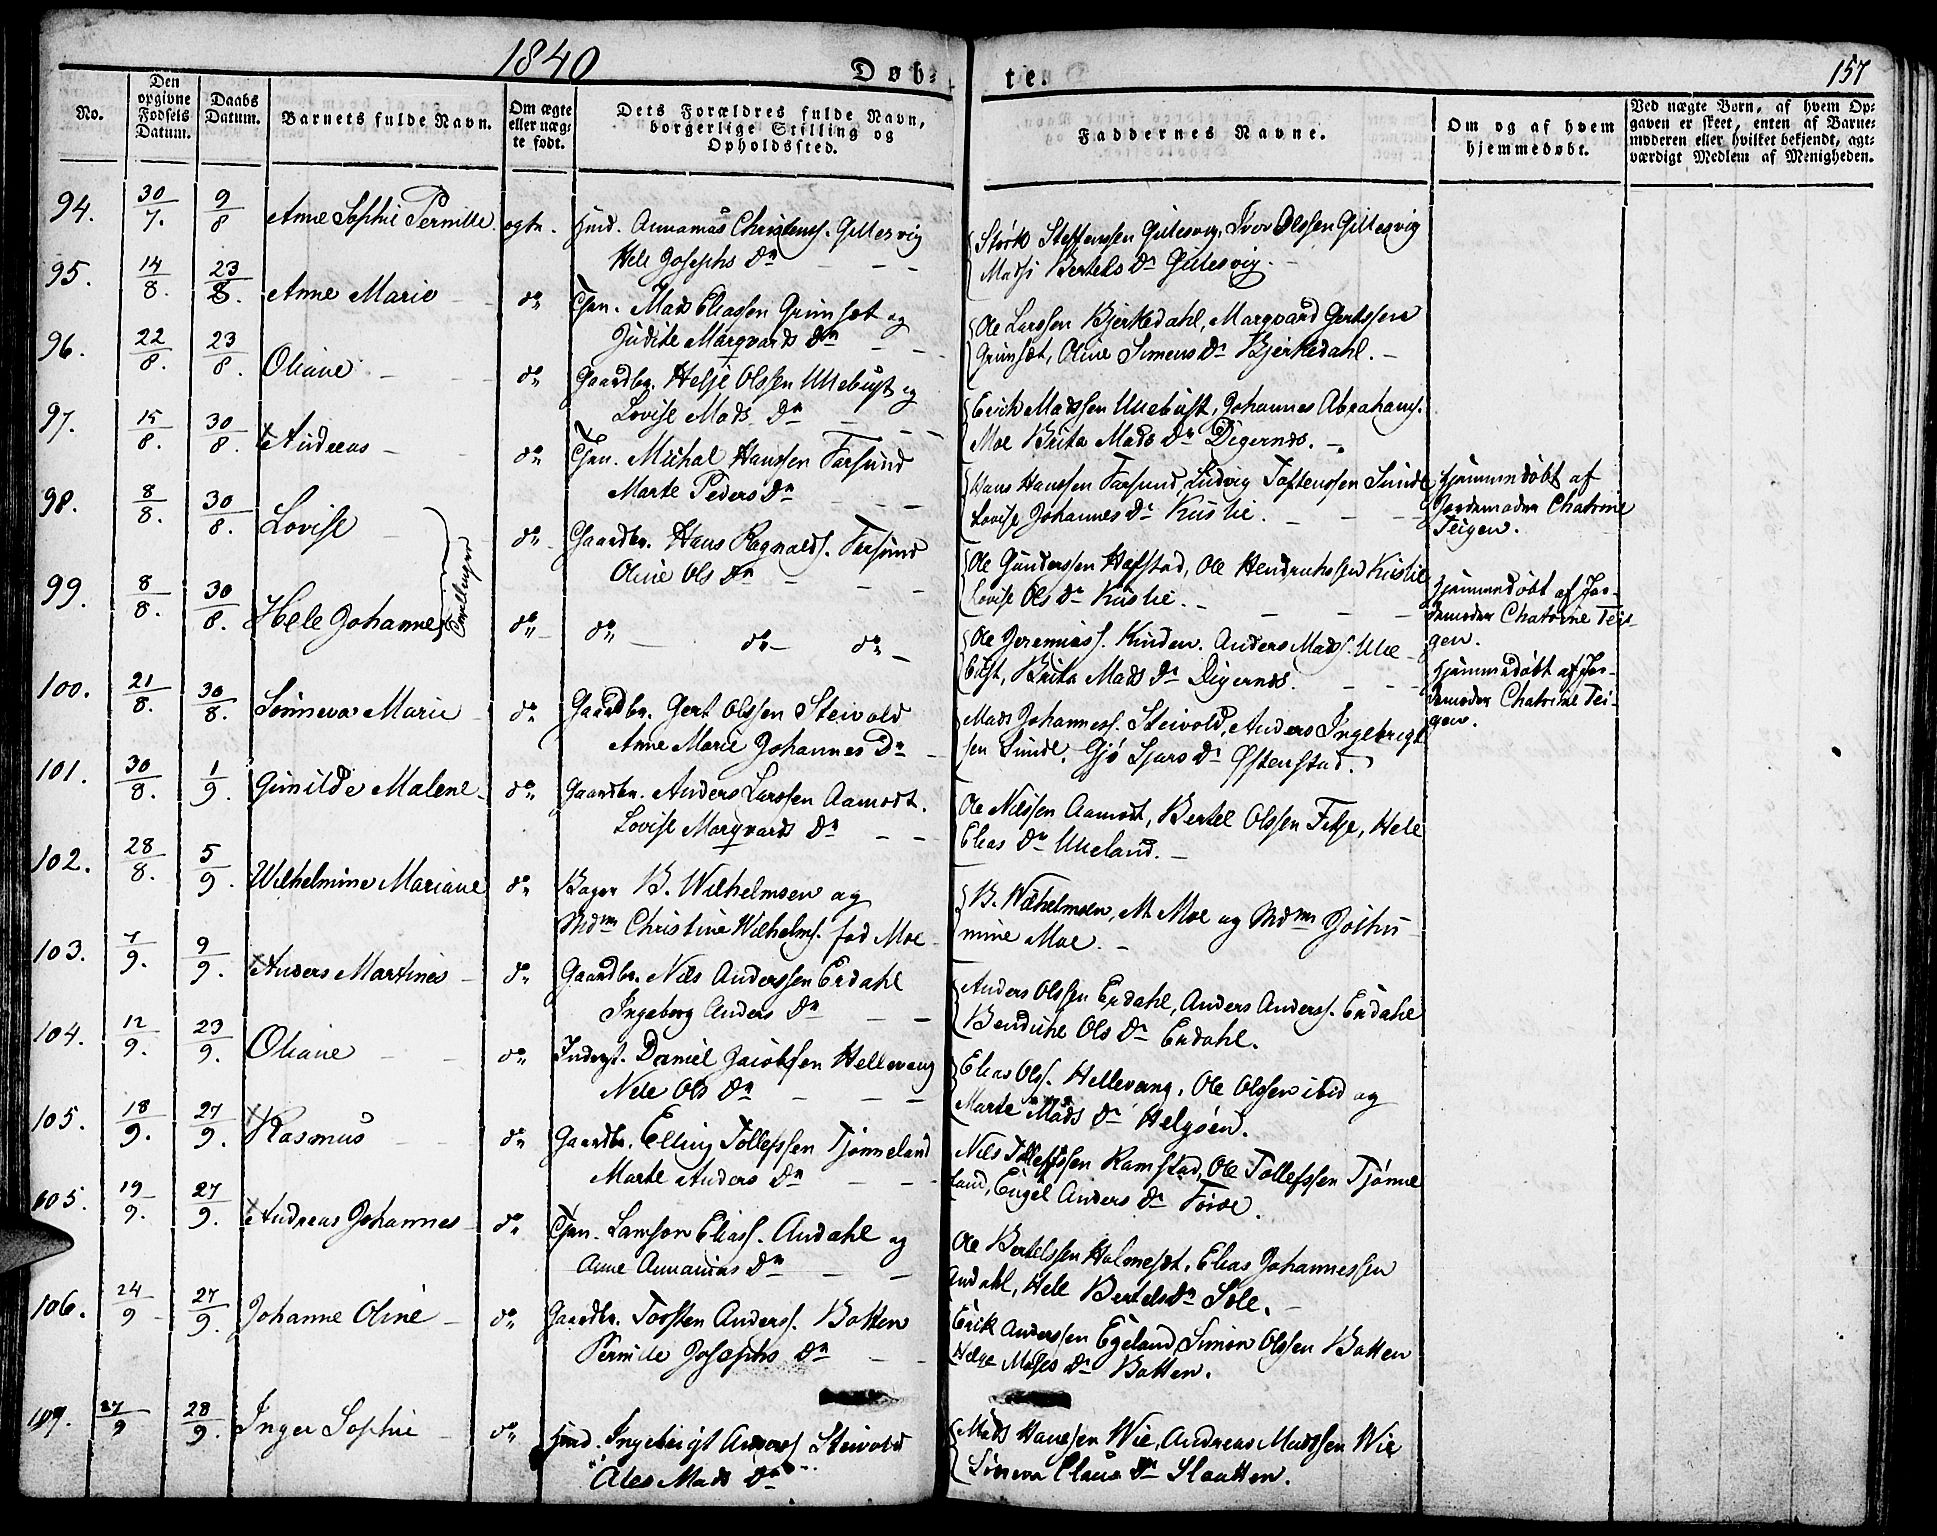 1840
Døb-
te.
157
No.
Den opgivne Fødsels Datum.
Daabs Datum.
Barnets fulde Navn.
Om ægte eller uæg-te født.
Dets Forældres fulde Navn, borgerlige Stilling og Opholdssted.
Faddernes Navne.
Om og af hvem hjemmedøbt.
Ved uægte Børn, af hvem Op-gaven er skeet, enten af Barne-moderen eller hvilket bekjendt, agt-værdigt Medlem af Menigheden.
94. 30/7. 9/8 Anne Sophie Pernille. egte. Huusd. Annanias Christens. Gillesvig
Hele Josephs Dr
Størk Steffenssen Gillesvig, Iver Olssen Gillesvig
Madsi Bertels Dr Gillesvig.
95. 14/8. 23/8. Anne Marie do Tjen. Mads Eliassen Grimsæt og
Judite Marqvards Dr
Ole Larssen Bjerkedahl, Marqvard Gertssen
Grimsæt, Oline Simens Dr Bjerkedahl.
96. 22/8. 23/8. Oliane do Gaardbr. Helje Olssen Ullebust og
Lovise Mads Dr
Erick Madssen Ullebust, Johannes Abrahams.
Moe Brita Mads Dr Digernes.
97. 15/8. 30/8. Andreas do Tjen. Michal Hanssen Farsund
Marte Peders Dr
Hans Hanssen Farsund Ludvig Toftenssen Sunde
Lovise Johannes Dr Kuslie.
Hjemmedøbt af
Jordemoder Chatrine
Teigen.
98. 8/8. 30/8. Lovise do Gaardbr. Hans Ragnalds. Farsund
Oline Ols Dr
Ole Gunderssen Hafstad, Ole Hendrichssen Kuslie
Lovise Ols Dr Kuslie.
Hjemmedøbt af Jor-
demoder Chatrine Tei-
gen.
Tvillinger
99. 8/8. 30/8. Hele Johanne do do do do
Ole Jeremiass. Kinden. Anders Mads. Ulle-
bust, Brita Mads Dr Digernes.
Hjemmedøbt af Jor-
demoder Chatrine Tei-
gen.
100. 21/8. 30/8. Sønneva Marie do Gaardbr. Gert Olssen Steivold
Anne Marie Johannes Dr
Mads Johanness. Steivold, Anders Ingebrigt
sen Sunde, Gjø Sjurs Dr Østenstad.
101. 30/8. 1/9. Gunilde Malene do Gaardbr. Anders Larssen Aamodt.
Lovise Marqvards Dr
Ole Nilssen Aamodt, Bertel Olssen Fitje, Hele
Elias Dr Ulleland.
102. 28/8. 5/9. Wilhelmine Mariane do Bager B. Wilhelmsen og
Mdm Christine Wilhelms. fød Moe
B. Wilhelmsen, M. Moe og Mdm
mine Moe.
103. 7/9. 9/9. Anders Martines do Gaardbr. Nils Anderssen Erdahl
Ingeborg Anders Dr
Anders Olssen Erdahl, Anders Anderss. Erdahl
Ols Dr Erdahl.
104. 12/9. 23/9. Oliane do Inderst. Daniel Jacobssen Hellevang
Nele Ols Dr
Elias Olss. Hellevang, Ole Olssen ibid og
Marte Mads Dr Helgøen.
105. 18/9. 27/9. Rasmus do Gaardbr. Elling Tollefssen Tjønneland
Marte Anders Dr
Nils Tolleffssen Ramstad, Ole Tollefssen Tjønne
land, Engel Anders Dr
105. 19/9. 27/9. Andreas Johannes do Tjen. Lamson Eliass. Andahl og
Anne Annanias Dr
Ole Bertelssen Holmesæt, Elias Johannessen
Andahl, Hele Bertels Dr Sole.
106. 24/9 27/9. Johanne Oline do Gaardbr. Torsten Anderss. Botten
Pernille Josephs Dr
Erik Anderssen Egeland Simon Olssen Botten
Helge Moses Dr Botten.
107. 27/9 28/9. Inger Sophie do Huusd. Ingebrigt Anderss Steivold
Ales Mads Dr
Mads Hanssen Wie, Andreas Madssen Wie
Sønneva Claus Dr Slaatten.